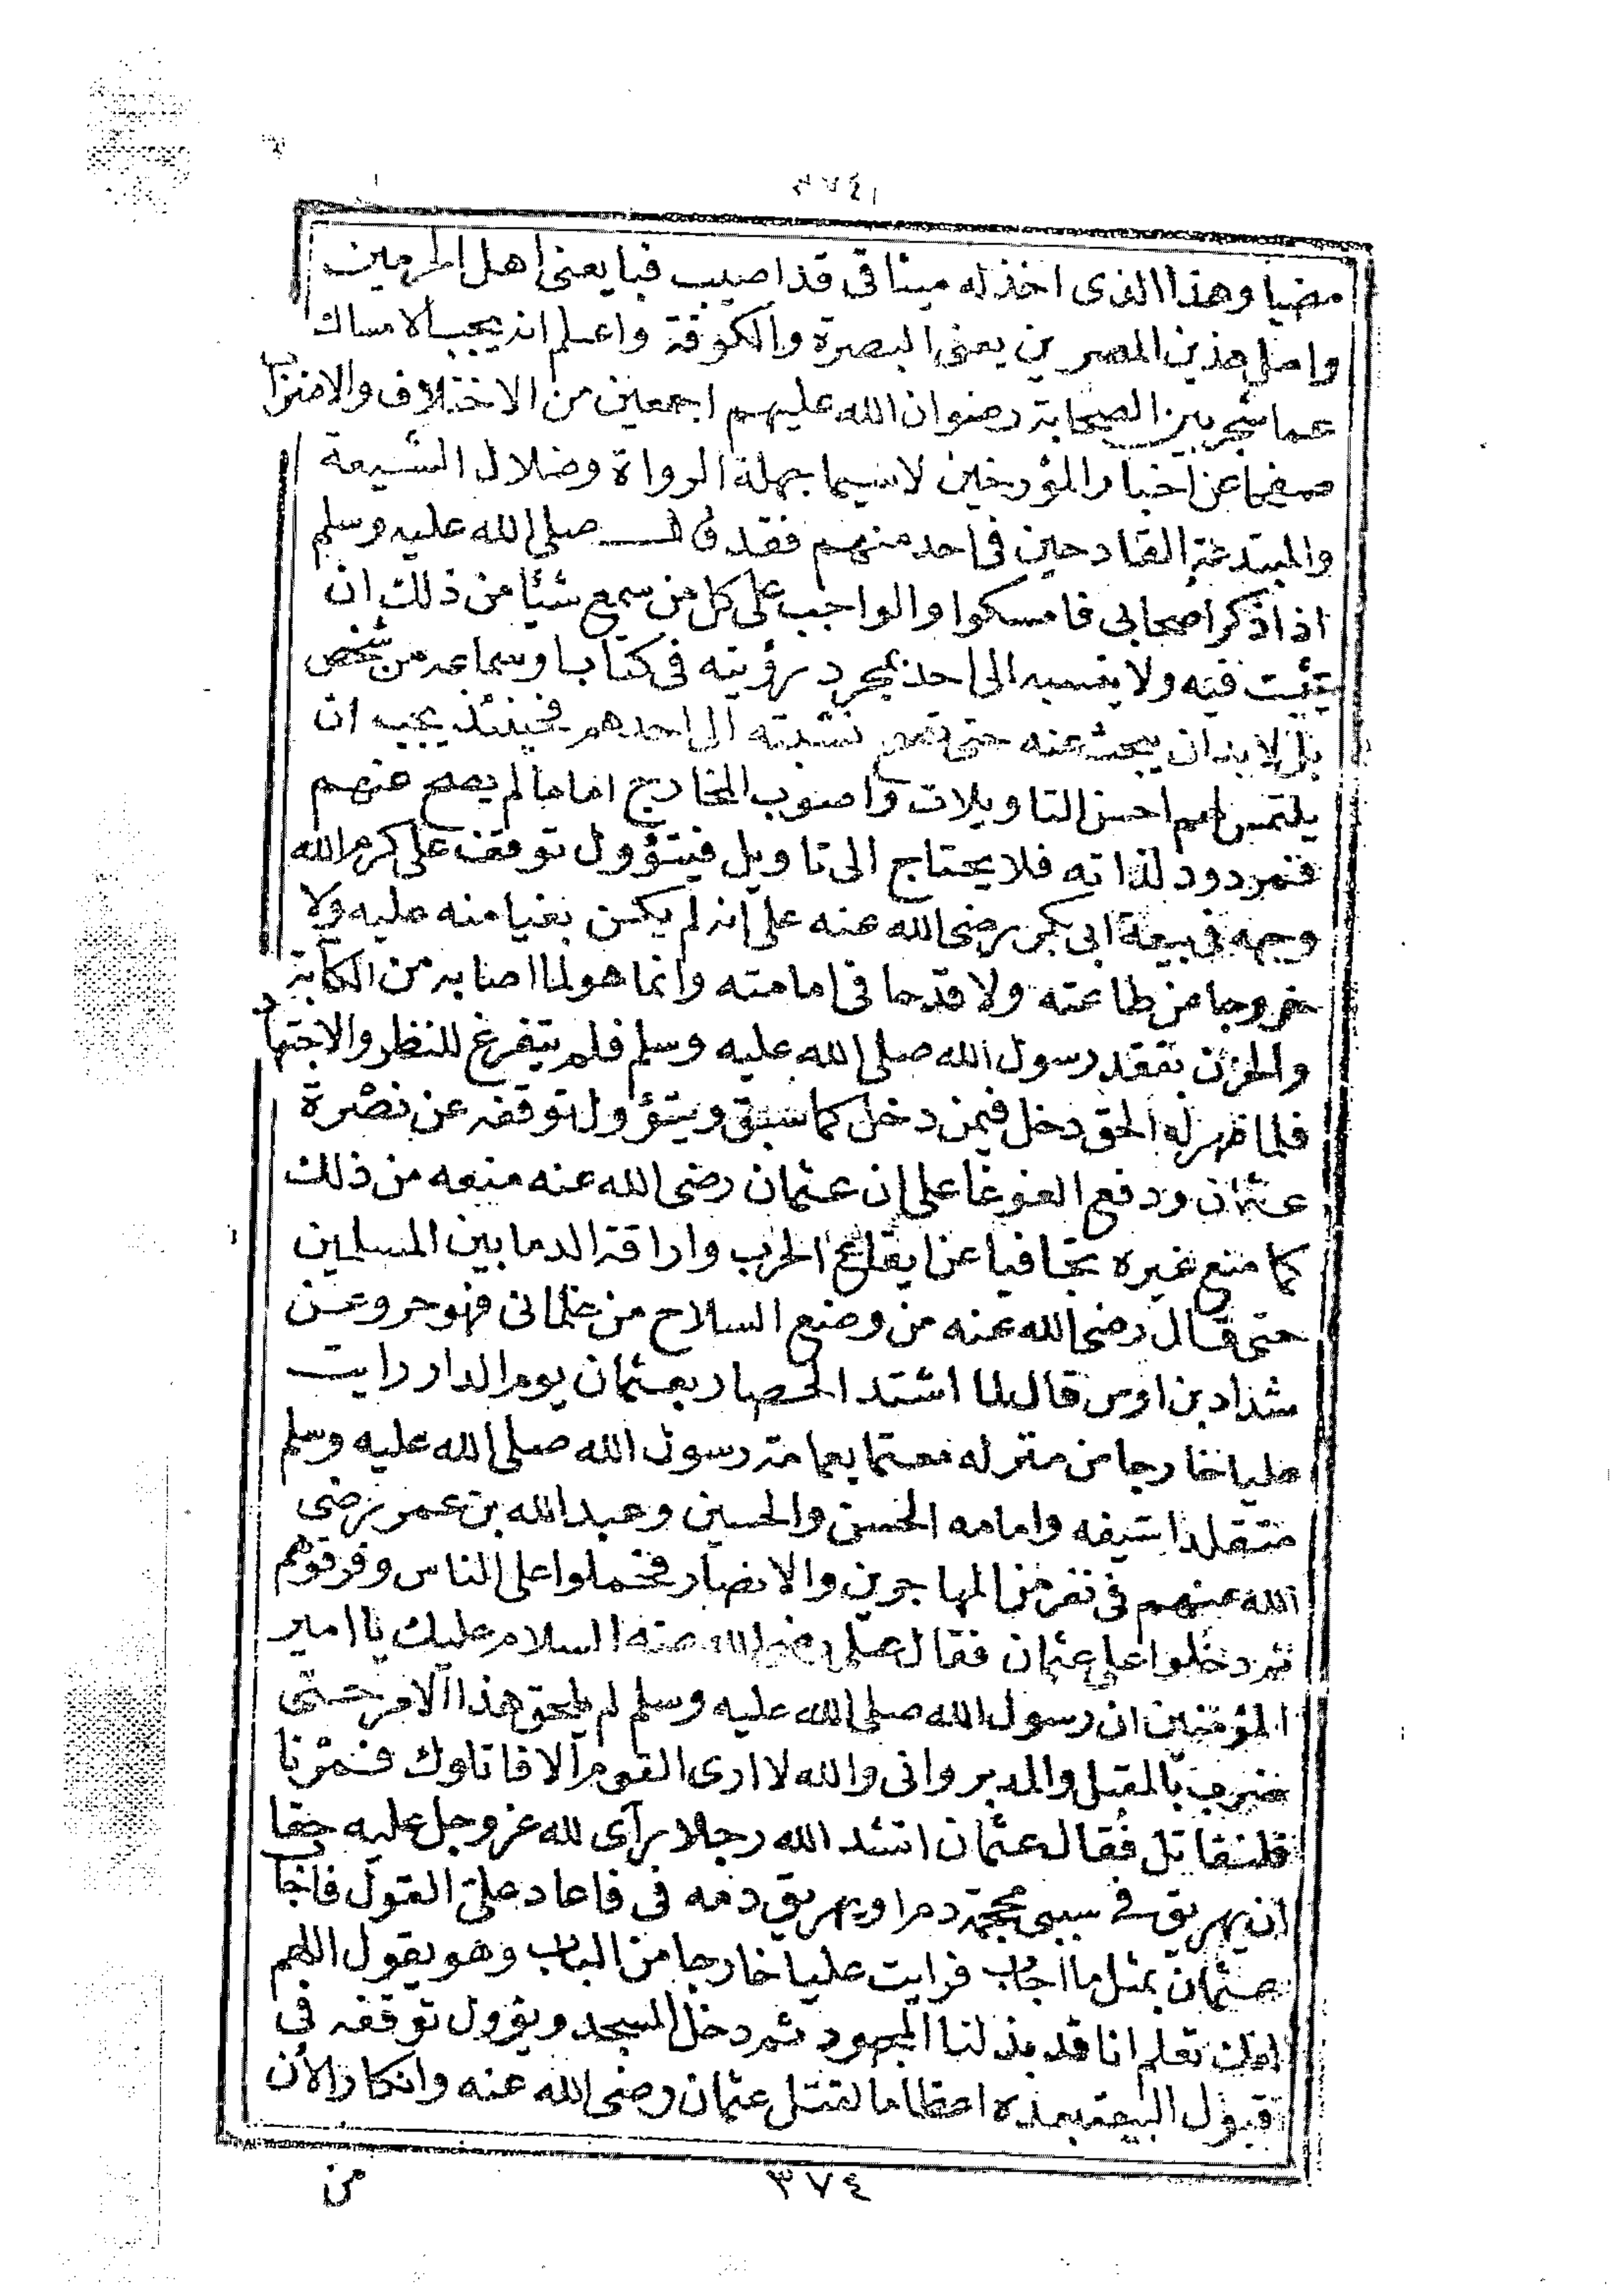 ٣٧٤
مضيا وهذا الذى اخذ له ميثاقى قد اصيب فبايعنى اهل الحرمين
واهل هذين المصرين يعنى البصرة والكوفة واعلم انه يجب الامساك
عما شجر بين الصحابة رضوان الله عليهم اجمعين من الاختلاف والاضراب
صفحا عن اخبار المؤرخين لاسيما جهلة الرواة وضلال الشيعة
والمبتدعة القادحين فى احد منهم فقد قال صلى الله عليه وسلم
اذا ذكر اصحابى فامسكوا والواجب على كل من سمع شيئا من ذلك ان
يتثبت فيه ولا ينسبه الى احد بمجرد رؤيته فى كتاب او سماعه من شخص
بل لا بد ان يبحث عنه حتى تصح نسبته الى احدهم فحينئذ يجب ان
يلتمس لهم احسن التاويلات واصوب المخارج اما ما لم يصح عنهم
فمردود لذاته فلا يحتاج الى تاويل فيتؤول توقف على كرم الله
وجهه فى بيعة ابى بكر رضى الله عنه على انه لم يكن بغيا منه عليه ولا
خروجا من طاعته ولا قدحا فى امامته وانما هو لما اصابه من الكآبة
والحزن بفقد رسول الله صلى الله عليه وسلم فلم يتفرغ للنظر والاجتهاد
فلما ظهر له الحق دخل فيمن دخل كما سبق ويتؤول توقفه عن نصرة
عثمان ودفع الغوغا على ان عثمان رضى الله عنه منعه من ذلك
كما منع غيره تجافيا عن ايقاع الحرب واراقة الدما بين المسلمين
حتى قال رضى الله عنه من وضع السلاح من غلمانى فهو حر وعن
شداد بن اوس قال لما اشتد الحصار بعثمان يوم الدار رايت
عليا خارجا من منزله معتما بعمامة رسول الله صلى الله عليه وسلم
متقلدا سيفه وامامه الحسن والحسين وعبد الله بن عمر رضى
الله عنهم فى نفر من المهاجرين والانصار فحملوا على الناس وفرقوهم
ثم دخلوا على عثمان فقال على رضى الله عنه السلام عليك يا امير
المؤمنين ان رسول الله صلى الله عليه وسلم لم يلحق هذا الامر حتى
ضرب بالمقبل والمدبر وانى والله لا ارى القوم الا قاتلوك فمرنا
فلنقاتل فقال عثمان انشد الله رجلا رآى لله عز وجل عليه حقا
ان يهريق فى سببى محجمة دما او يهريق دمه فى فاعاد على القول فاجابه
عثمان بمثل ما اجاب فرايت عليا خارجا من الباب وهو يقول اللهم
انك تعلم انا قد بذلنا المجهود ثم دخل المسجد ويؤول توقفه فى
قبول البيعة بعده اعظاما لقتل عثمان رضى الله عنه وانكارا لان
من
٣٧٤